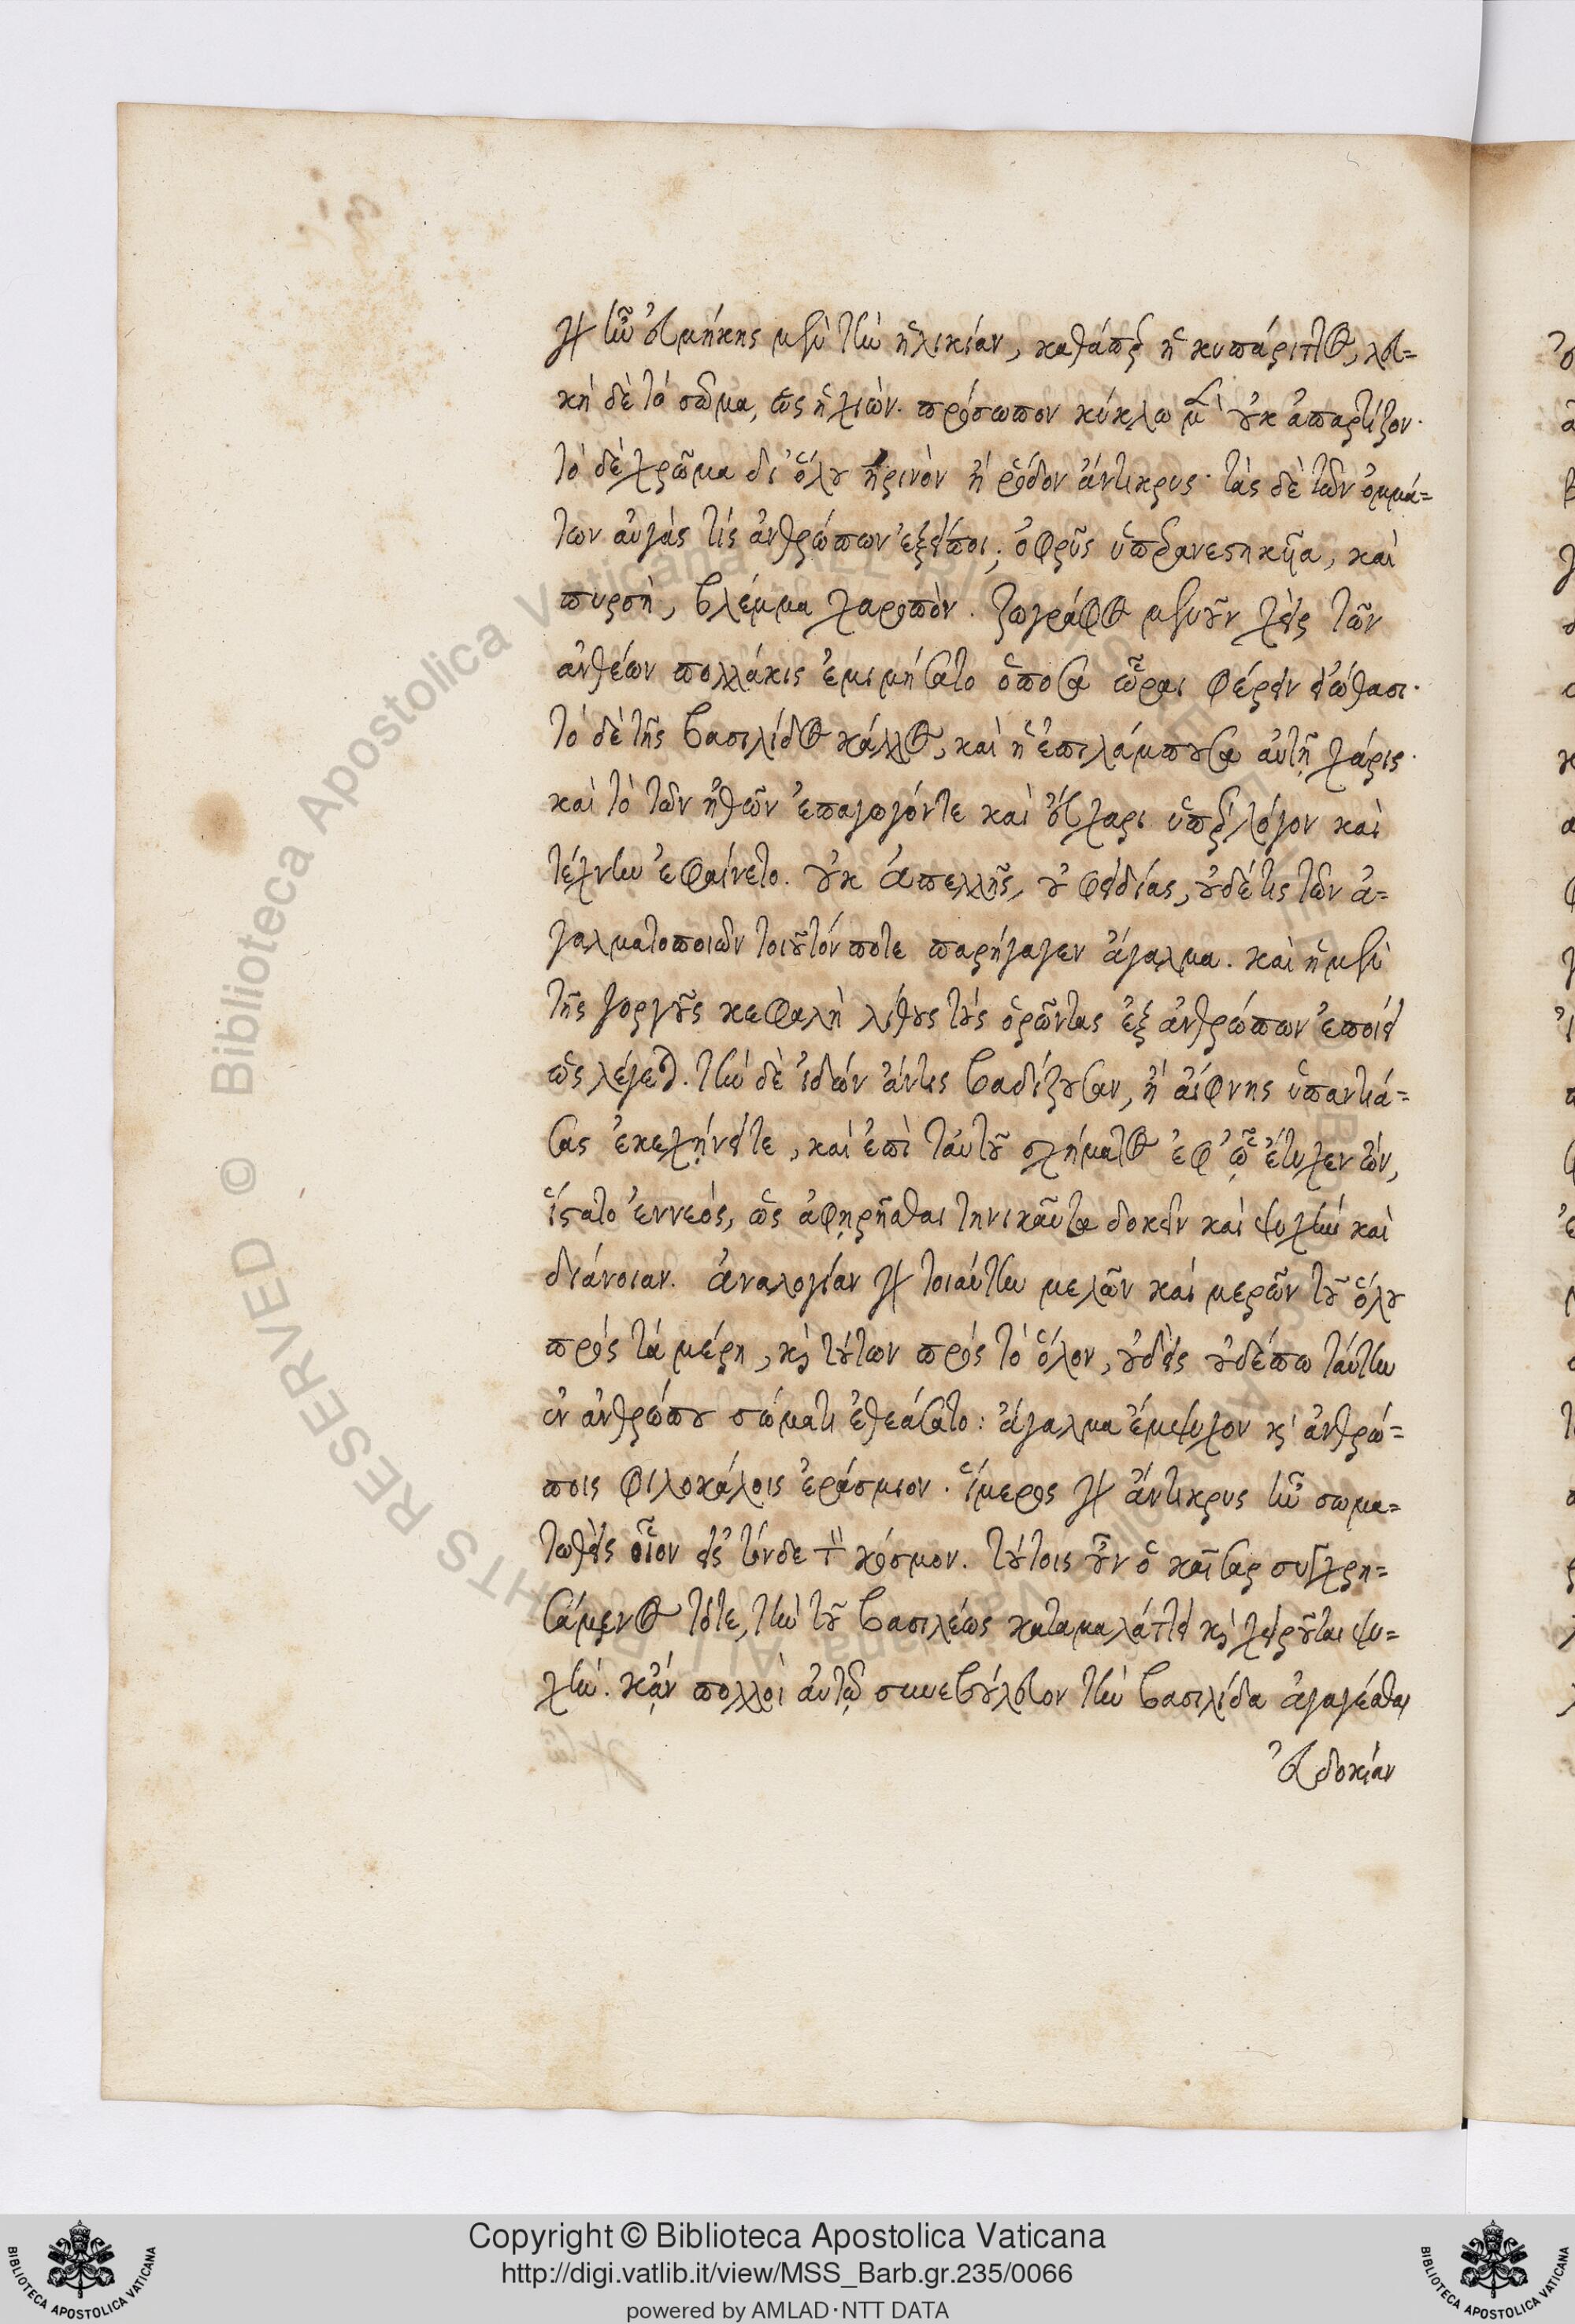 γὰρ ἦν εὐμήκης μὲν τὴν ἡλικίαν, καθάπερ ἡ κυπάριττος, λευ=
κὴ δὲ τὸ σῶμα, ὡς ἡ χιών. πρόσωπον κύκλω μὲν οὐκ ἀπαρτίζον·
τὸ δὲ χρῶμα δι' ὅλου ἠρινὸν ἢ ῥόδον ἄντικρυς· τὰς δὲ τῶν ὀμμά=
των αὐγὰς τίς ἀνθρώπων ἐξείποι; ὀφρῦς ὑπερανεστηκυῖα, καὶ
πυρσὴ, βλέμμα χαροπὸν. ζωγράφος μὲν οὖν χεὶρ τῶν
ἀνθέων πολλάκις ἐμιμήσατο ὁπόσα ὧραι φέρειν εἰώθασι·
τὸ δὲ τῆς βασιλίδος κάλλος, καὶ ἡ ἐπιλάμπουσα αὐτῇ χάρις·
καὶ τὸ τῶν ἠθῶν ἐπαγωγόν τε καὶ εὔχαρι ὑπὲρ λόγον καὶ
τέχνην ἐφαίνετο. οὐκ ἀπελλῆς, οὐ φειδίας, οὐδέ τις τῶν ἀ=
γαλματοποιῶν τοιοῦτόν ποτε παρήγαγεν ἄγαλμα. καὶ ἡ μὲν
τῆς γοργοῦς κεφαλὴ λίθους τοὺς ὁρῶντας ἐξ ἀνθρώπων ἐποίει
ὡς λέγεται. τὴν δὲ ἰδὼν ἄν τις βαδίζουσαν, ἢ αἴφνης ὑπαντιά=
σας ἐκεχήνει τε, καὶ ἐπὶ ταὐτοῦ σχήματος ἐφ' ᾧ ἔτυχεν ὢν,
ἵστατο ἐννεός, ὡς ἀφῃρῆσθαι τηνικαῦτα δοκεῖν καὶ ψυχὴν καὶ
διάνοιαν. ἀναλογίαν γὰρ τοιαύτην μελῶν καὶ μερῶν τοῦ ὅλου
πρὸς τὰ μέρη, καὶ τούτων πρὸς τὸ ὅλον, οὐδεὶς οὐδέπω ταύτην
ἐν ἀνθρώπου σώματι ἐθεάσατο: ἄγαλμα ἔμψυχον καὶ ἀνθρώ=
ποις φιλοκάλοις ἐράσμιον. ἵμερος γὰρ ἄντικρυς ἦν σωμα=
τωθεὶς οἷον εἰς τόνδε τὸν κόσμον. τούτοις οὖν ὁ καῖσαρ συγχρη=
σάμενος τότε, τὴν τοῦ βασιλέως καταμαλάττει καὶ χειροῦται ψυ=
χήν. κἂν πολλοὶ αὐτῷ συνεβούλευον τὴν βασιλίδα ἀγαγέσθαι
εὐδοκίαν
Copyright © Biblioteca Apostolica Vaticana
http://digi.vatlib.it/view/MSS_Barb.gr.235/0066
powered by AMLAD·NTT DATA